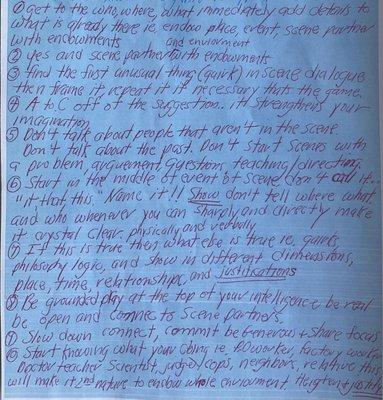 ① get to the who, where, what immediately add details to
what is already there ie, endow place, event, scene partner
with endowments
and enviorment
② yes and scene partner with endowments
③ find the first unusual thing (quirk) in scene dialogue
then frame it, repeat it if necessary thats the game.
④ A to C off of the suggestion.. it strengthens your
imagination
⑤ Don't talk about people that aren't in the scene
Don't talk about the past. Don't start scenes with
a problem, arguement, questions, teaching/directing.
⑥ Start in the middle of event of scene, don't call it...
"it, that, this." Name it!! Show don't tell where what
and who whenever you can sharply and directly make
it crystal clear. physically and verbally
⑦ If this is true then what else is true ie,
philosophy logic, and show in different dimenssions,
place, time, relationships, and justifications
⑧ Be grounded play at the top of your intelligence be real
be open and connec to scene partners.
⑨ Slow down connect, commit be Generous + Share focus
⑩ Start knowing what your doing ie. factory worker
Doctor teacher Scientist, judge, cops, neighbors, relative this
will make it 2nd nature to endow whole enviorment Heigten +